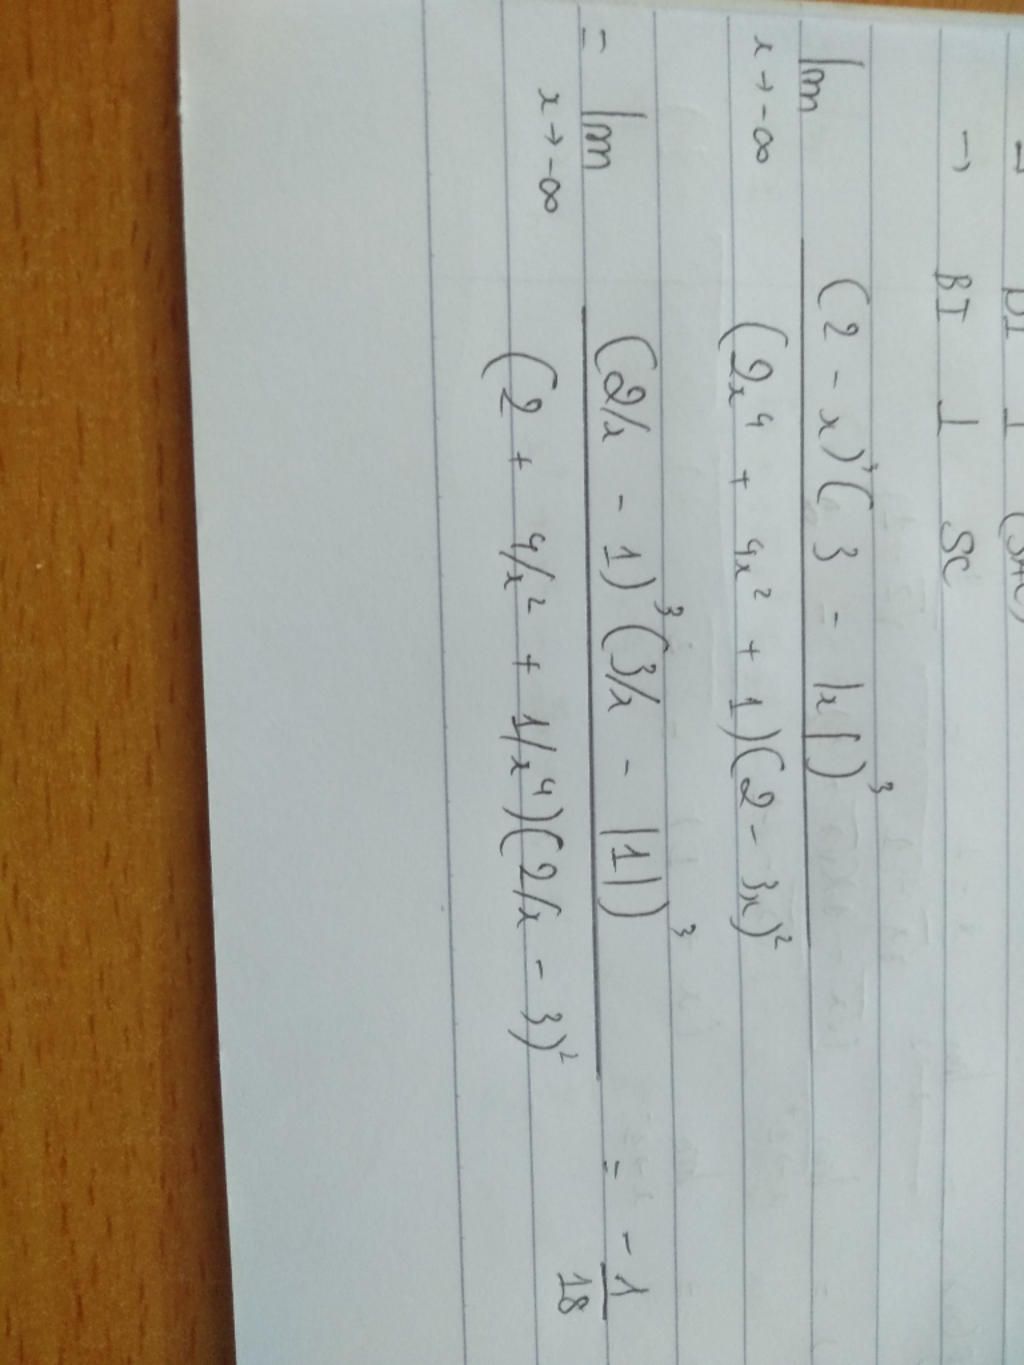 → BI I SC
lim x→-∞ (2 - x)³(3 - |x|)³ / (2x⁴ + 4x² + 1)(2 - 3x)²
= lim x→-∞ (2/x - 1)³(3/x - |1|)³ / (2 + 4/x² + 1/x⁴)(2/x - 3)² = -1/18